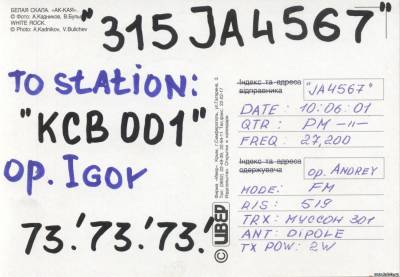 БЕЛАЯ СКАЛА. «АК-КАЯ».
© Фото: А.Кадников, В.Булычев
WHITE ROCK.
© Photo: A.Kadnikov, V.Bulichev
"315 JA4567"
TO STATION:
"KCB 001"
op. IGOR
73! 73! 73!
© ШВЕР
Індекс та адреса
відправника
"JA4567"
DATE: 10:06:01
QTR: PM -11-
FREQ: 27,200
Індекс та адреса
одержувача
op. ANDREY
MODE: FM
RIS: 519
TRX: МУССОН 301
ANT: DIPOLE
TX POW: 2W